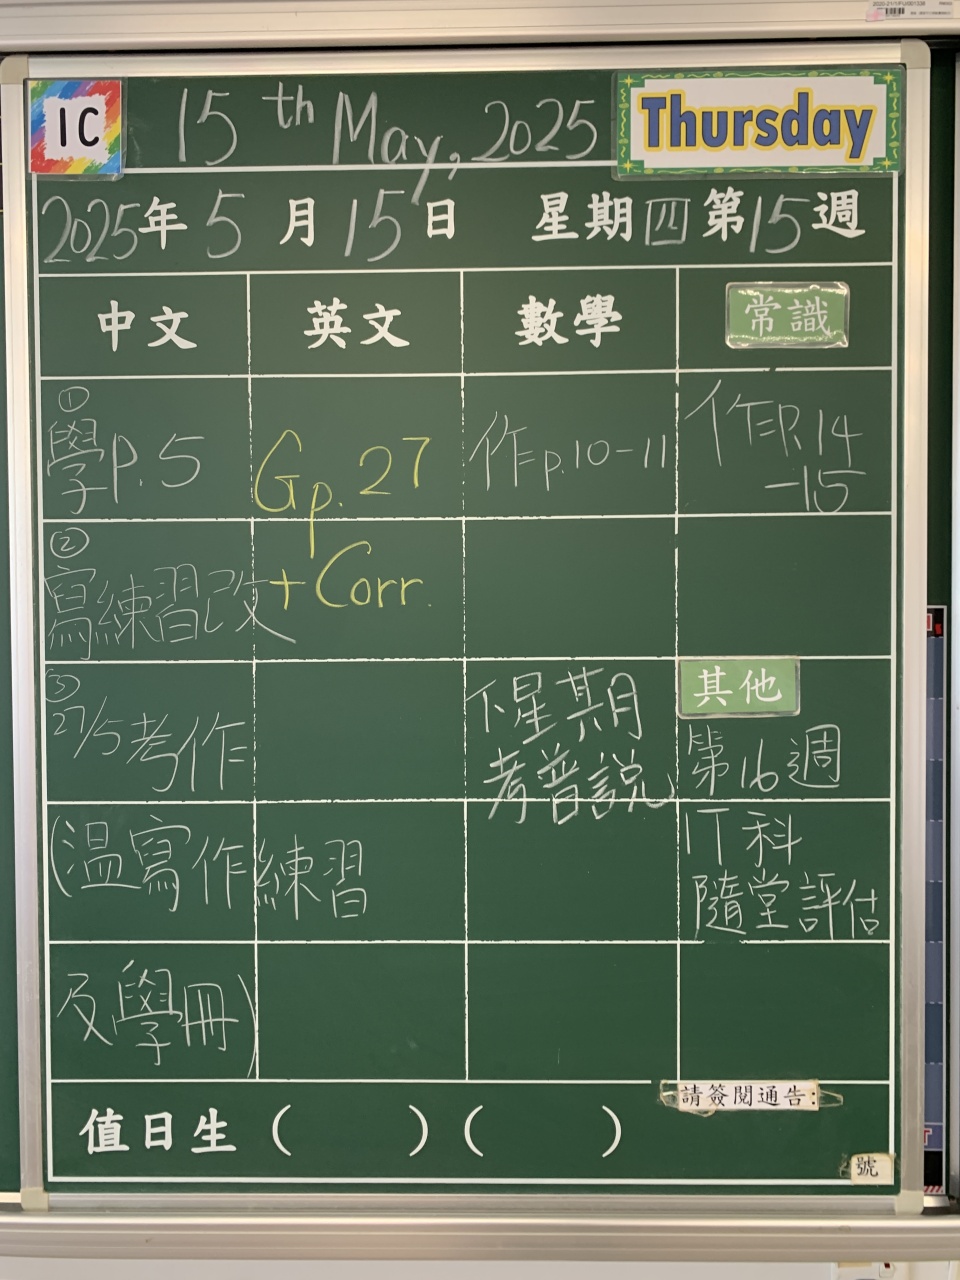 1C
15th May, 2025
Thursday
2025年5月15日 星期四 第15週
中文 英文 數學 常識
①
學P.5
Gp.27
作p.10-11
作P.14
-15
②
寫練習改
+Corr.
③
27/5考作
下星期
考普說
其他
第16週
(溫寫作練習
IT科
隨堂評估
及學冊)
請簽閱通告:
值日生 ( ) ( )
號